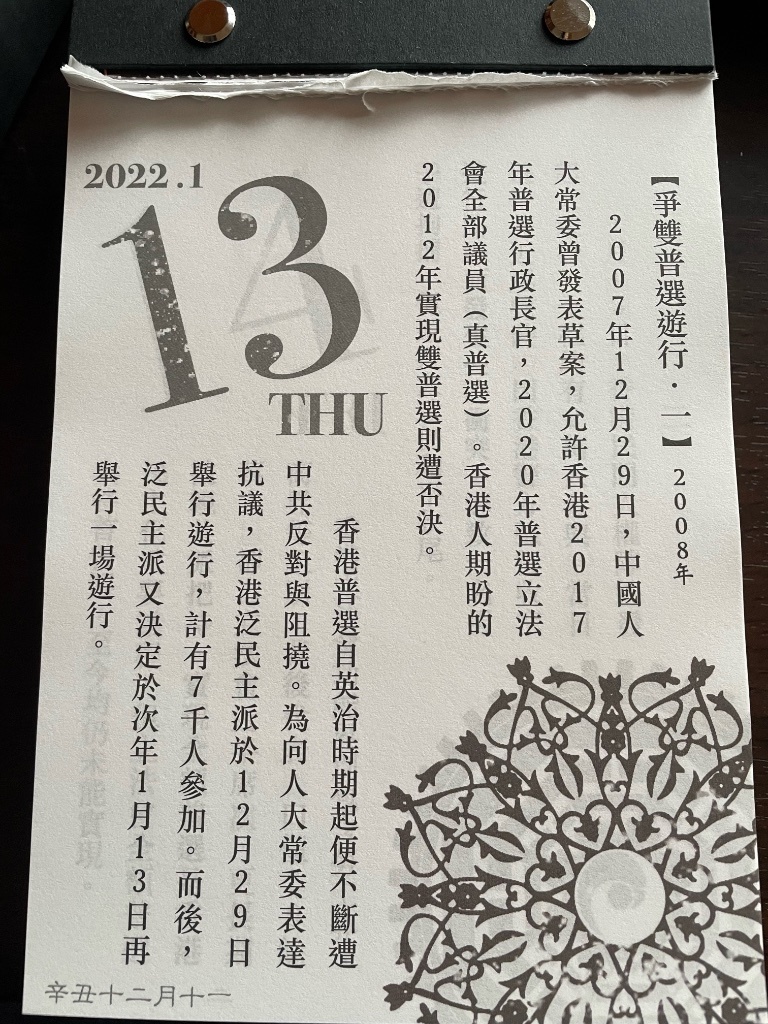 2022.1
13
THU
【爭雙普選遊行・一】2008年
2007年12月29日，中國人
大常委曾發表草案，允許香港2017
年普選行政長官，2020年普選立法
會全部議員（真普選）。香港人期盼的
2012年實現雙普選則遭否決。
香港普選自英治時期起便不斷遭
中共反對與阻撓。為向人大常委表達
抗議，香港泛民主派於12月29日
舉行遊行，計有7千人參加。而後，
泛民主派又決定於次年1月13日再
舉行一場遊行。
辛丑十二月十一